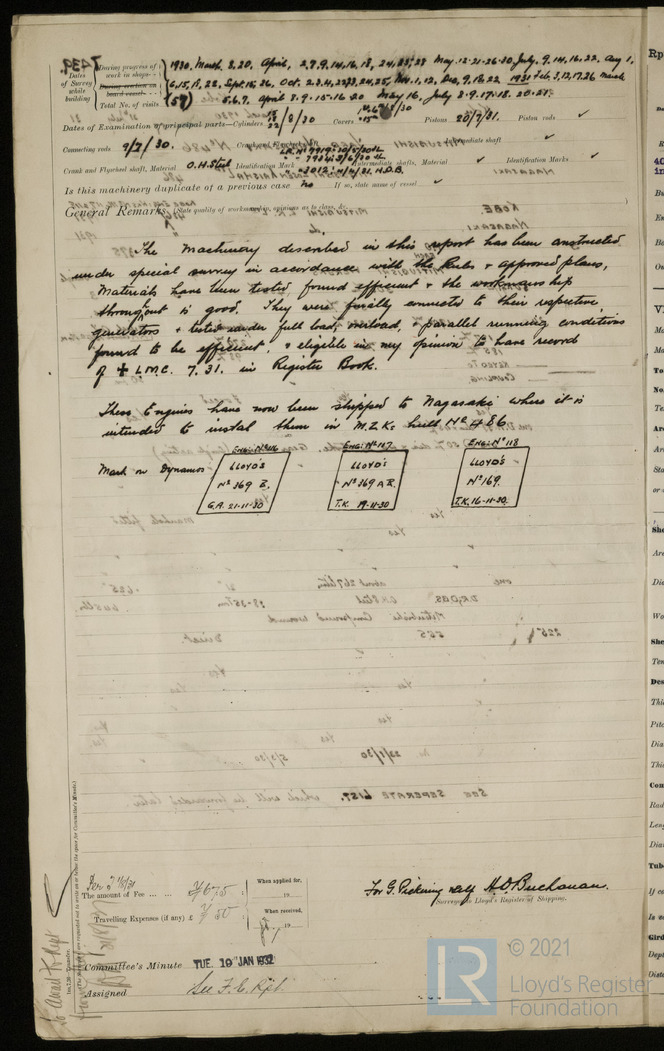 7439.
Dates of Survey while building
During progress of work in shops - - 1930. March. 3, 20. April, 2.7.9.14.16.18, 24, 25, 28 May. 12-21-26-30, July, 9.14.16.22. Aug 1,
During erection on board vessel - - - 6,15,18,22, Sept. 15, 26, Oct. 2.3.4, 24,25, Nov. 1, 12, Dec, 9.18.22 1931 Feb. 3,12,17.26 March
Total No. of visits (59) 5.6.7, April 8.9.15-16 20 May 16, July 8-9-17-18. 20-21.
Dates of Examination of principal parts—Cylinders 22/8/30 Covers Pistons 20/7/31. Piston rods ✓
Connecting rods 9/7/30.
Crank and Flywheel shaft, Material O.H. Steel Identification Mark Intermediate shafts, Material ✓ Identification Marks ✓
Is this machinery duplicate of a previous case no If so, state name of vessel ✓
General Remarks (State quality of workmanship, opinions as to class, &c.
The Machinery described in this report has been constructed
under special survey in accordance with the Rules & approved plans,
Materials have been tested found efficient & the workmanship
throughout is good. They were finally connected to their respective
generators & tested under full load, overload, & parallel running conditions
found to be efficient, & eligible in my opinion to have record
of + L.M.C. 7.31. in Register Book.
These Engines have now been shipped to Nagasaki where it is
intended to instal them in M.Z.K. hull No 486.
Mark on Dynamos
Eng: No 116
LLOYD'S
No 369 B.
G.A. 21-11-30
Eng: No 117
LLOYD'S
No 369 A R.
T.K. 19-11-30
Eng: No 118
LLOYD'S
No 169.
T.K. 16-11-30.
The amount of Fee ... ... ¥675
When applied for,
Travelling Expenses (if any) £ ¥50
When received,
For G. Pickering self H.D. Buchanan.
Surveyor to Lloyd's Register of Shipping.
Committee's Minute TUE. 19 JAN 1932
Assigned See F.E. Rpt.
© 2021
Lloyd's Register
Foundation
LR